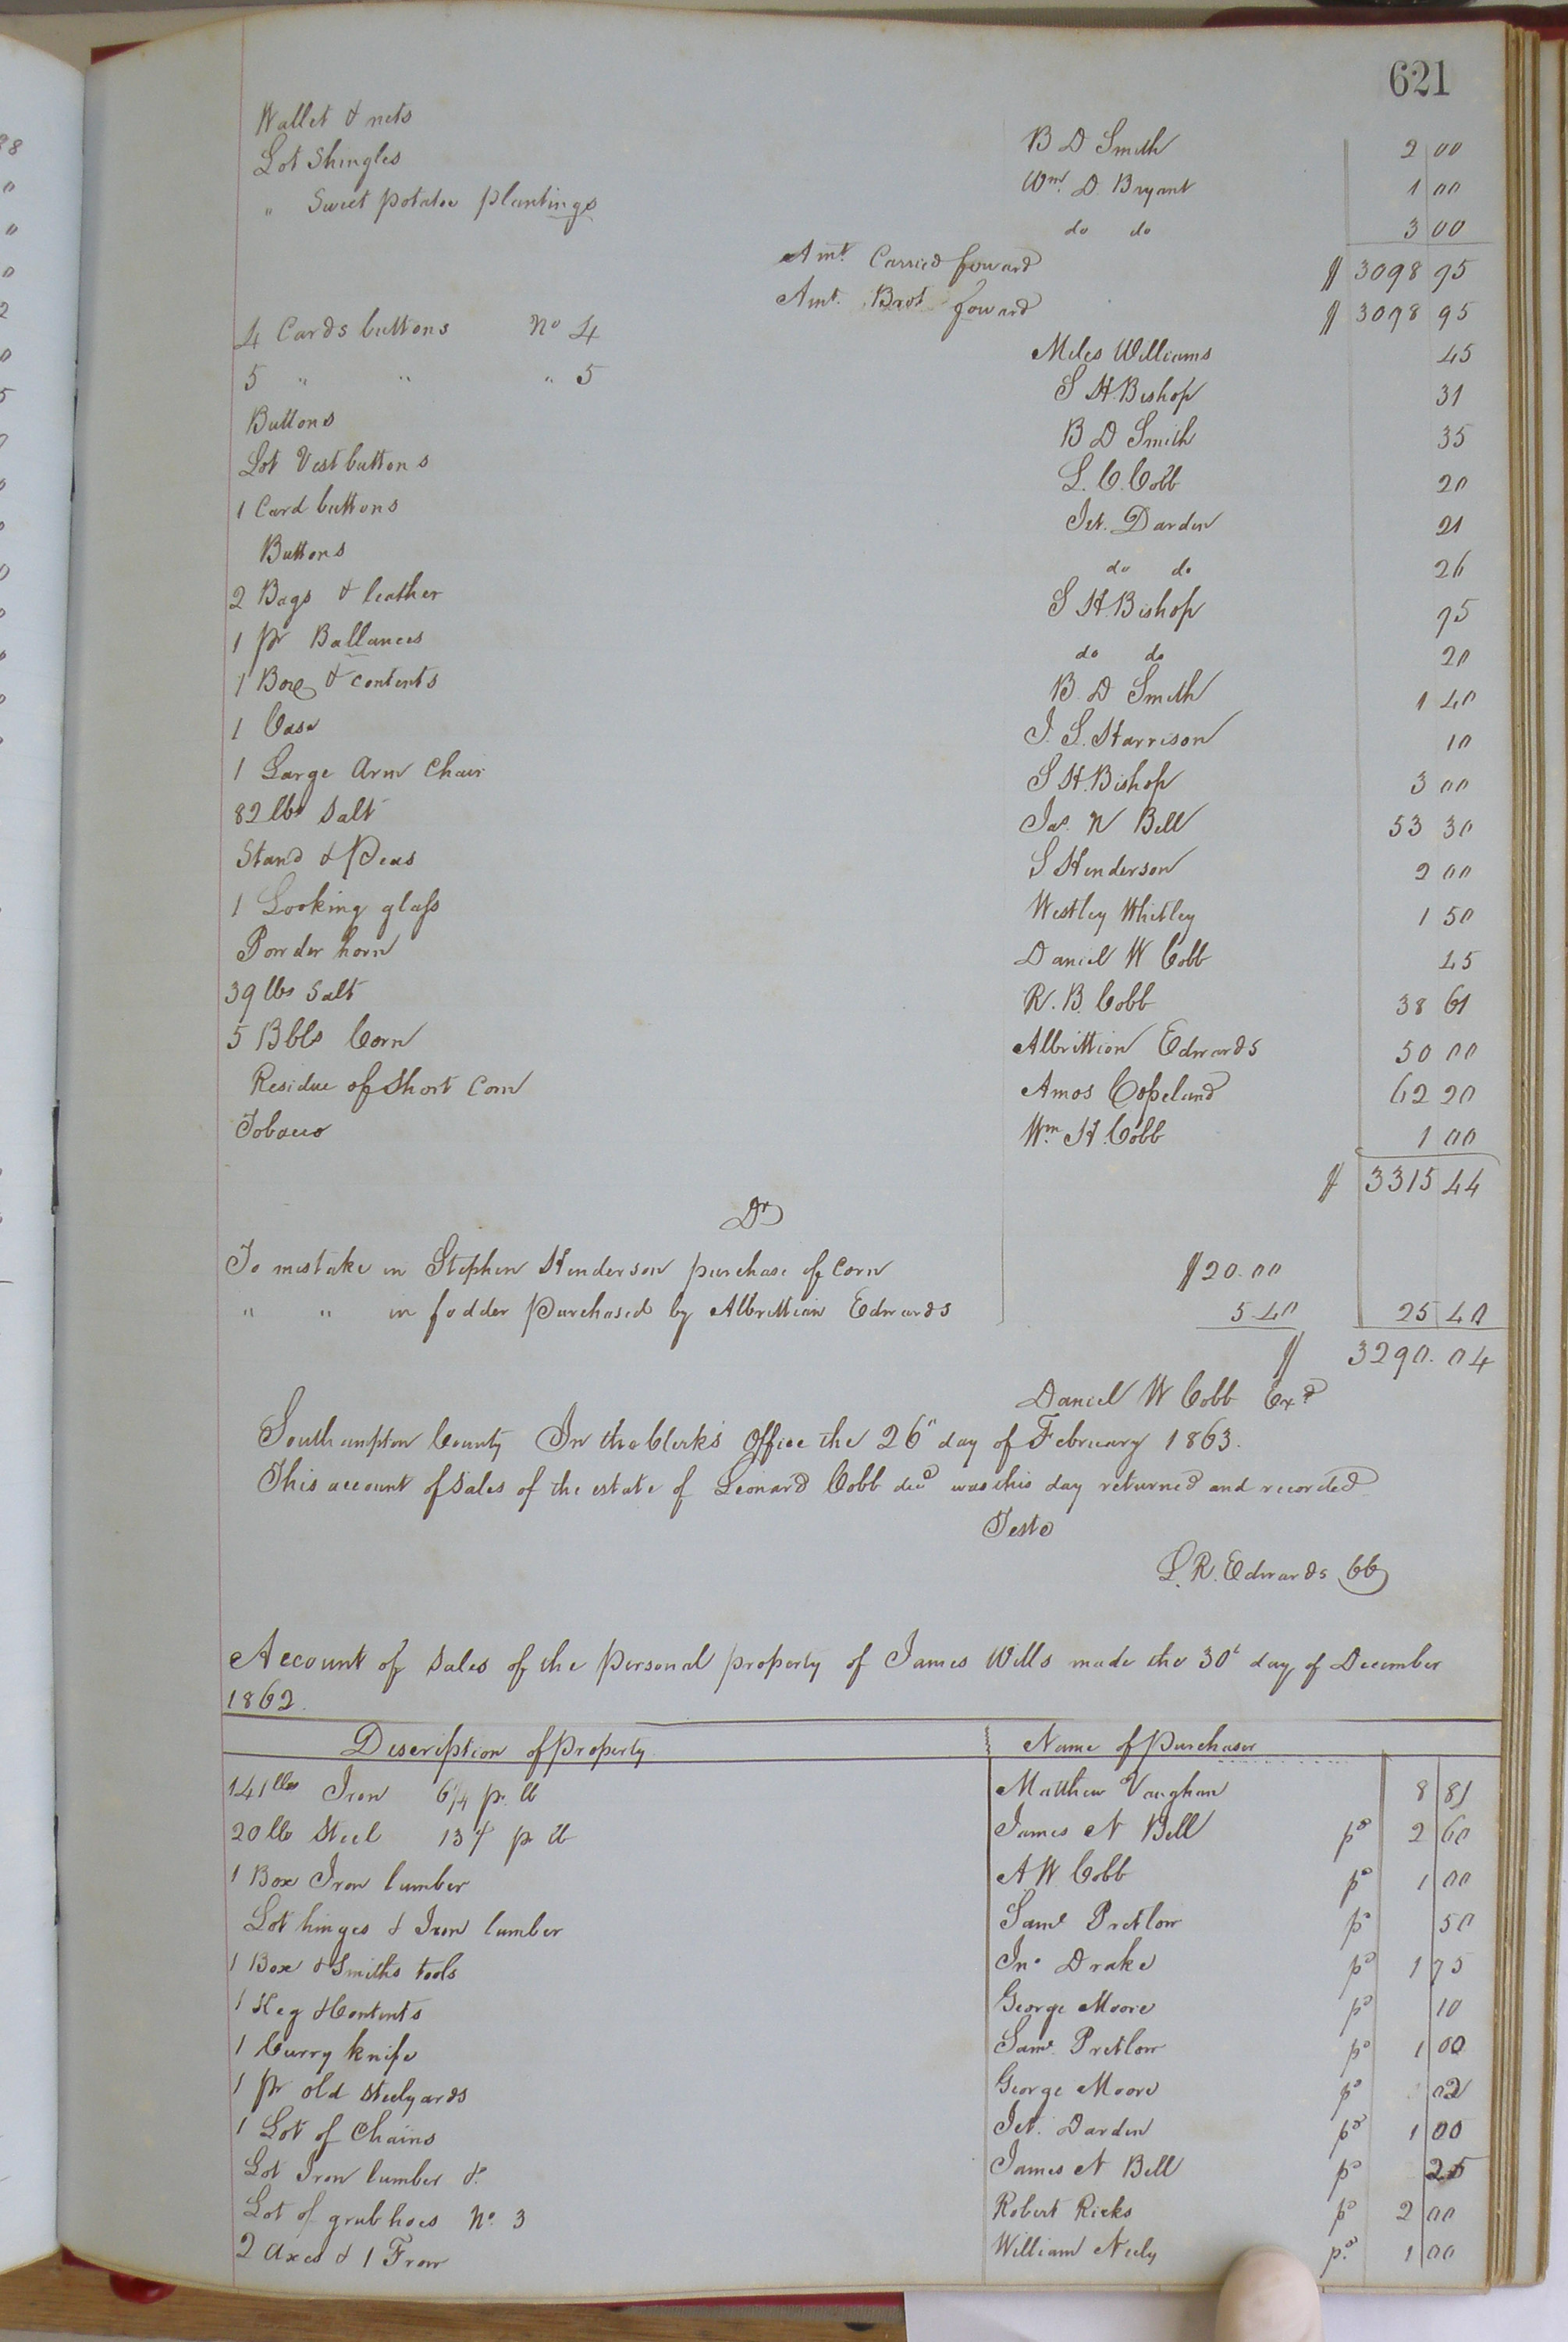 621
Wallet & nets B D Smith 2 00
Lot Shingles Wm. D. Bryant 1 00
" Sweet potatoe plantings do do 3 00
Amt. Carried foward $ 3098 95
Amt. Brot foward $ 3098 95
4 Cards buttons No 4 Miles Williams 45
5 " " " 5 S H. Bishop 31
Buttons B D Smith 35
Lot Vest buttons L. C. Cobb 20
1 Card buttons Jet. Darden 21
Buttons do do 26
2 Bags & leather S H. Bishop 75
1 pr Ballances do do 20
1 Box & contents B. D Smith 1 40
1 Case J. S. Harrison 10
1 Large Arm Chair S H. Bishop 3 00
82 lbs Salt Jas. N Bell 53 30
Stand & Peas S Henderson 2 00
1 Looking glass Westley Whitley 1 50
Powder horn Daniel W Cobb 45
39 lbs Salt R. B. Cobb 38 61
5 Bbls Corn Albrittion Edwards 50 00
Residue of Short Corn Amos Copeland 62 20
Tobacco Wm. H. Cobb 1 00
$ 3315 44
Dr
To mistake in Stephen Henderson purchase of Corn $20.00
" " in fodder Purchased by Albrittian Edwards 5.40 25 40
$ 3290.04
Daniel W Cobb Exr
Southampton County In the Clerk's Office the 26" day of February 1863.
This account of Sales of the estate of Leonard Cobb decd was this day returned and recorded
Teste
L. R. Edwards CC
Account of Sales of the personal property of James Wills made the 30t day of December
1862.
Description of Property Name of Purchaser
141 lbs Iron 6¼ pr. lb Matthew Vaughan 8 81
20 lb Steel 13 ¢ pr lb James N Bell pd 2 60
1 Box Iron lumber A W Cobb pd 1 00
Lot hinges & Iron lumber Saml Pretlow pd 50
1 Box & Smiths tools Jno Drake pd 1 75
1 Keg & Contents George Moore pd 10
1 Curry knife Saml. Pretlow pd 1 00
1 pr old Steelyards George Moore pd 02
1 Lot of Chains Jet. Darden pd 1 00
Lot Iron lumber &c James N Bell pd 25
Lot of grub hoes No. 3 Robert Ricks pd 2 00
2 Axes & 1 Frow William Neely pd 1 00